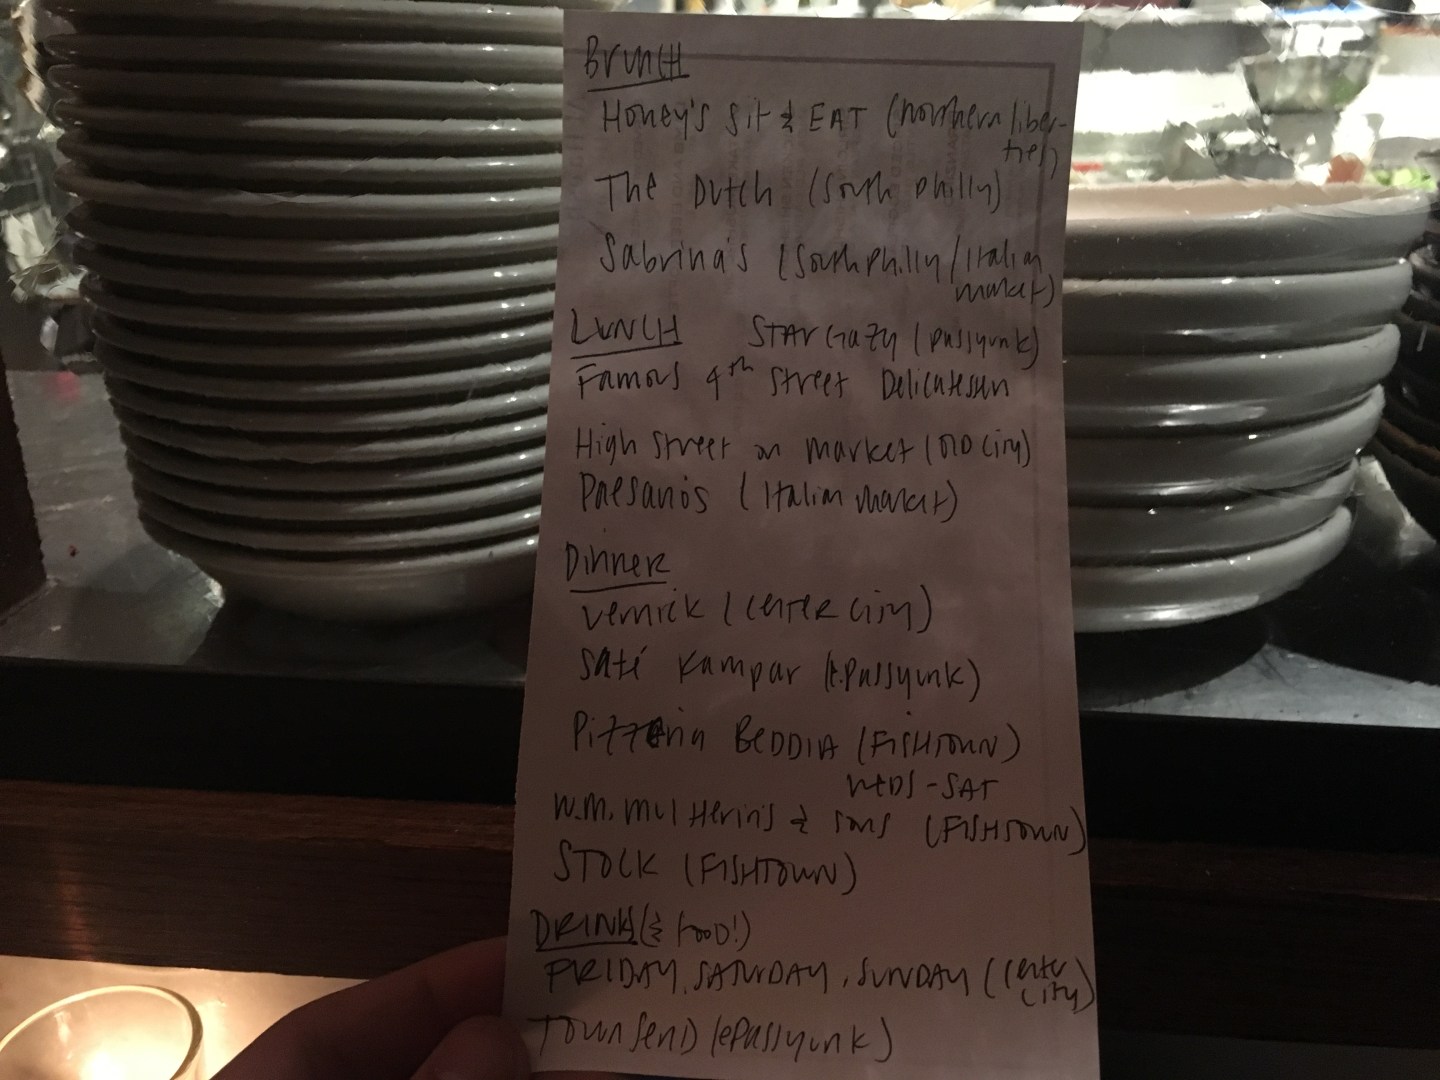 Brunch
Honey's Sit & EAT (northern liber-
ties)
The Dutch (South Philly)
Sabrina's (South Philly/Italian
market)
LUNCH STARGAZY (passyunk)
Famous 4th Street Delicatessen
High Street on Market (OLD City)
Paesano's (Italian market)
Dinner
Vernick (CENTER City)
Saté Kampar (E.Passyunk)
Pizzeria BEDDIA (FISHTOWN)
WEDS-SAT
W.M. Mulherin's & sons (FISHTOWN)
STOCK (FISHTOWN)
DRINKS (& FOOD!)
FRIDAY, SATURDAY, SUNDAY (Center
City)
Townsend (ePassyunk)